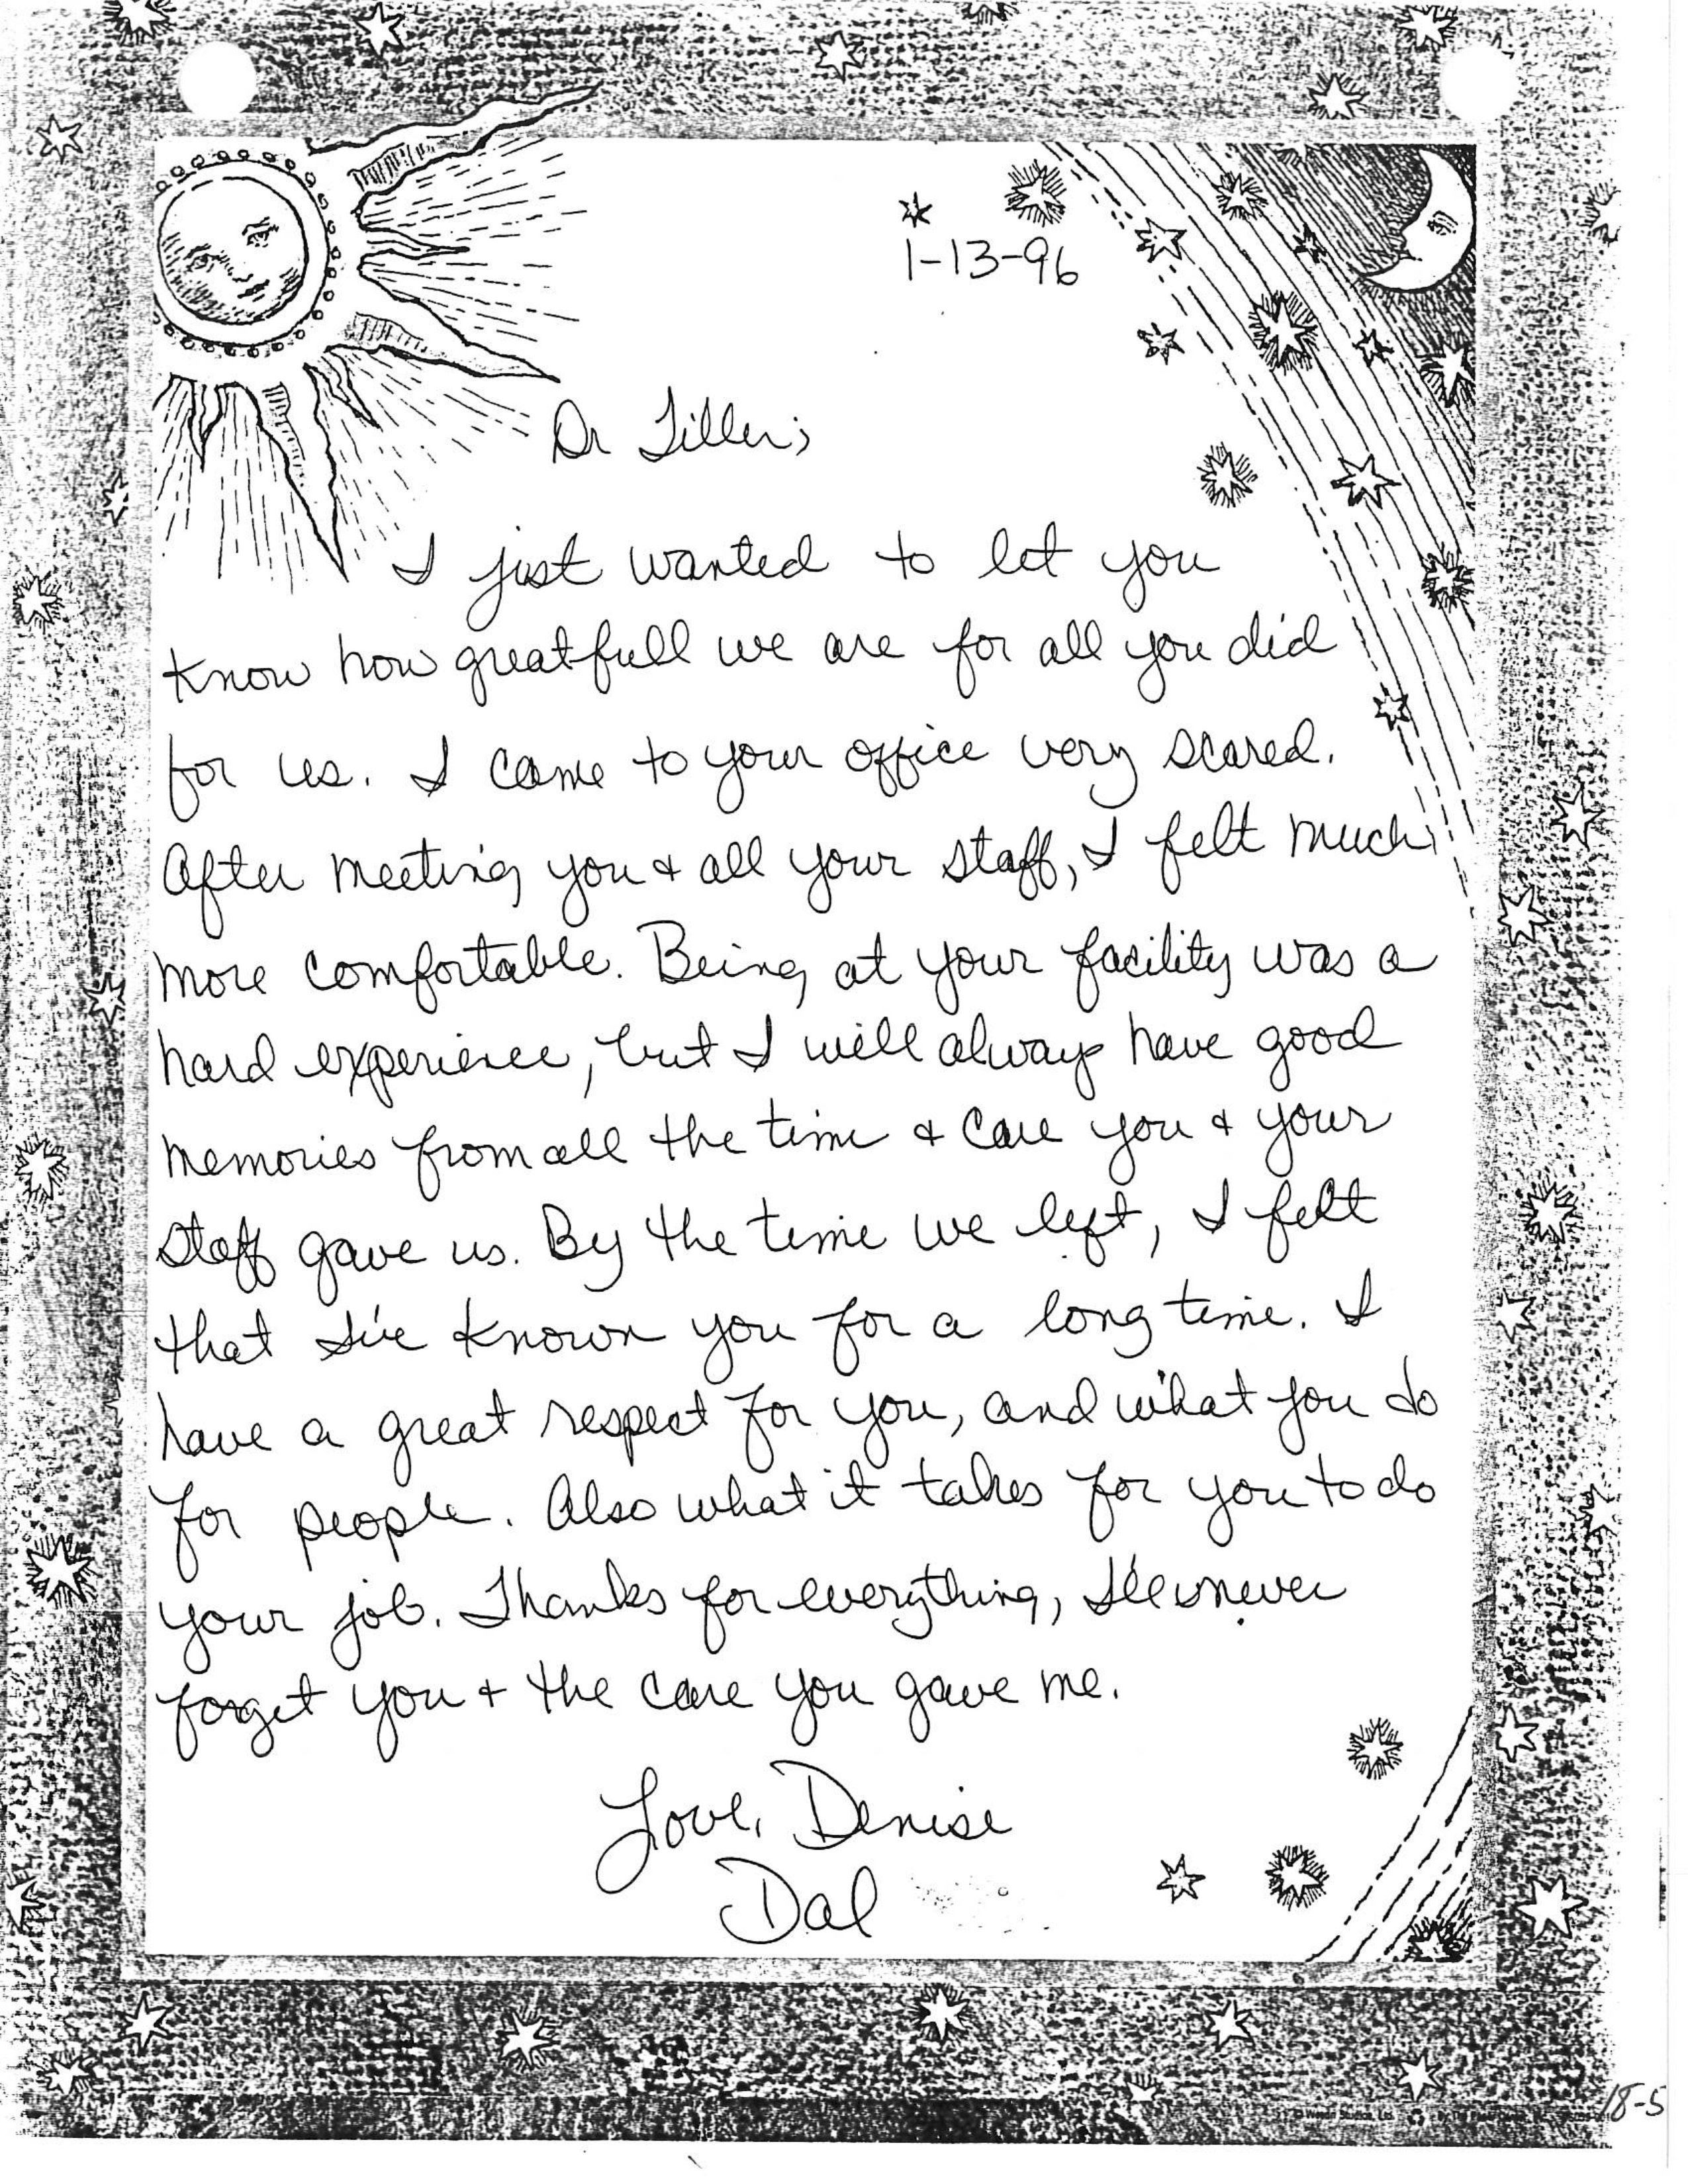 1-13-96
Dr Tiller;
I just wanted to let you
know how greatfull we are for all you did
for us. I came to your office very scared.
After meeting you & all your staff, I felt much
more comfortable. Being at your facility was a
hard experience, but I will always have good
memories from all the time & care you & your
staff gave us. By the time we left, I felt
that I've known you for a long time. I
have a great respect for you, and what you do
for people. Also what it takes for you to do
your job. Thanks for everything, I'll never
forget you & the care you gave me.
Love, Denise
Dal
18-5